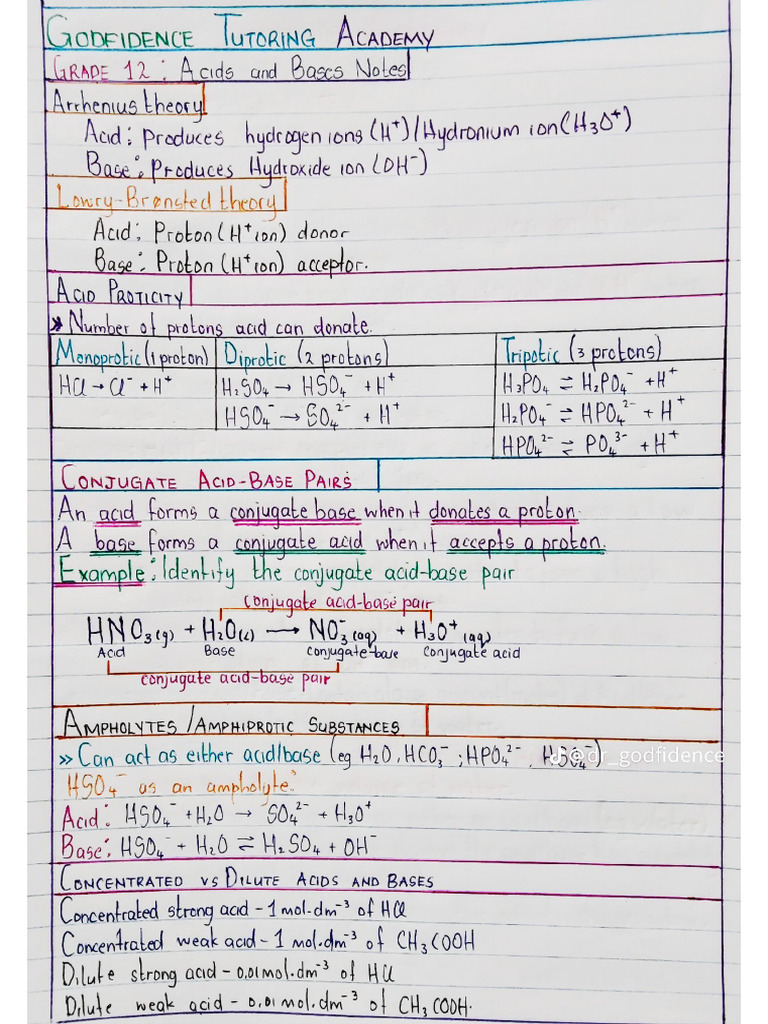 GODFIDENCE TUTORING ACADEMY
GRADE 12: Acids and Bases Notes
Arrhenius theory
Acid: Produces hydrogen ions (H⁺)/Hydronium ion (H₃O⁺)
Base: Produces Hydroxide ion (OH⁻)
Lowry-Brønsted theory
Acid: Proton (H⁺ ion) donor
Base: Proton (H⁺ ion) acceptor.
ACID PROTICITY
» Number of protons acid can donate.
Monoprotic (1 proton) Diprotic (2 protons) Tripotic (3 protons)
HCl → Cl⁻ + H⁺ H₂SO₄ → HSO₄⁻ + H⁺ H₃PO₄ ⇌ H₂PO₄⁻ + H⁺
HSO₄⁻ → SO₄²⁻ + H⁺ H₂PO₄⁻ ⇌ HPO₄²⁻ + H⁺
HPO₄²⁻ ⇌ PO₄³⁻ + H⁺
CONJUGATE ACID-BASE PAIRS
An acid forms a conjugate base when it donates a proton.
A base forms a conjugate acid when it accepts a proton.
Example: Identify the conjugate acid-base pair
conjugate acid-base pair
HNO₃(g) + H₂O(l) → NO₃⁻(aq) + H₃O⁺(aq)
Acid Base conjugate base conjugate acid
conjugate acid-base pair
AMPHOLYTES / AMPHIPROTIC SUBSTANCES
» Can act as either acid/base (eg H₂O, HCO₃⁻; HPO₄²⁻, HSO₄⁻)
@dr_godfidence
HSO₄⁻ as an ampholyte:
Acid: HSO₄⁻ + H₂O → SO₄²⁻ + H₃O⁺
Base: HSO₄⁻ + H₂O ⇌ H₂SO₄ + OH⁻
CONCENTRATED VS DILUTE ACIDS AND BASES
Concentrated strong acid - 1 mol.dm⁻³ of HCl
Concentrated weak acid - 1 mol.dm⁻³ of CH₃COOH
Dilute strong acid - 0,01 mol.dm⁻³ of HCl
Dilute weak acid - 0,01 mol.dm⁻³ of CH₃COOH.